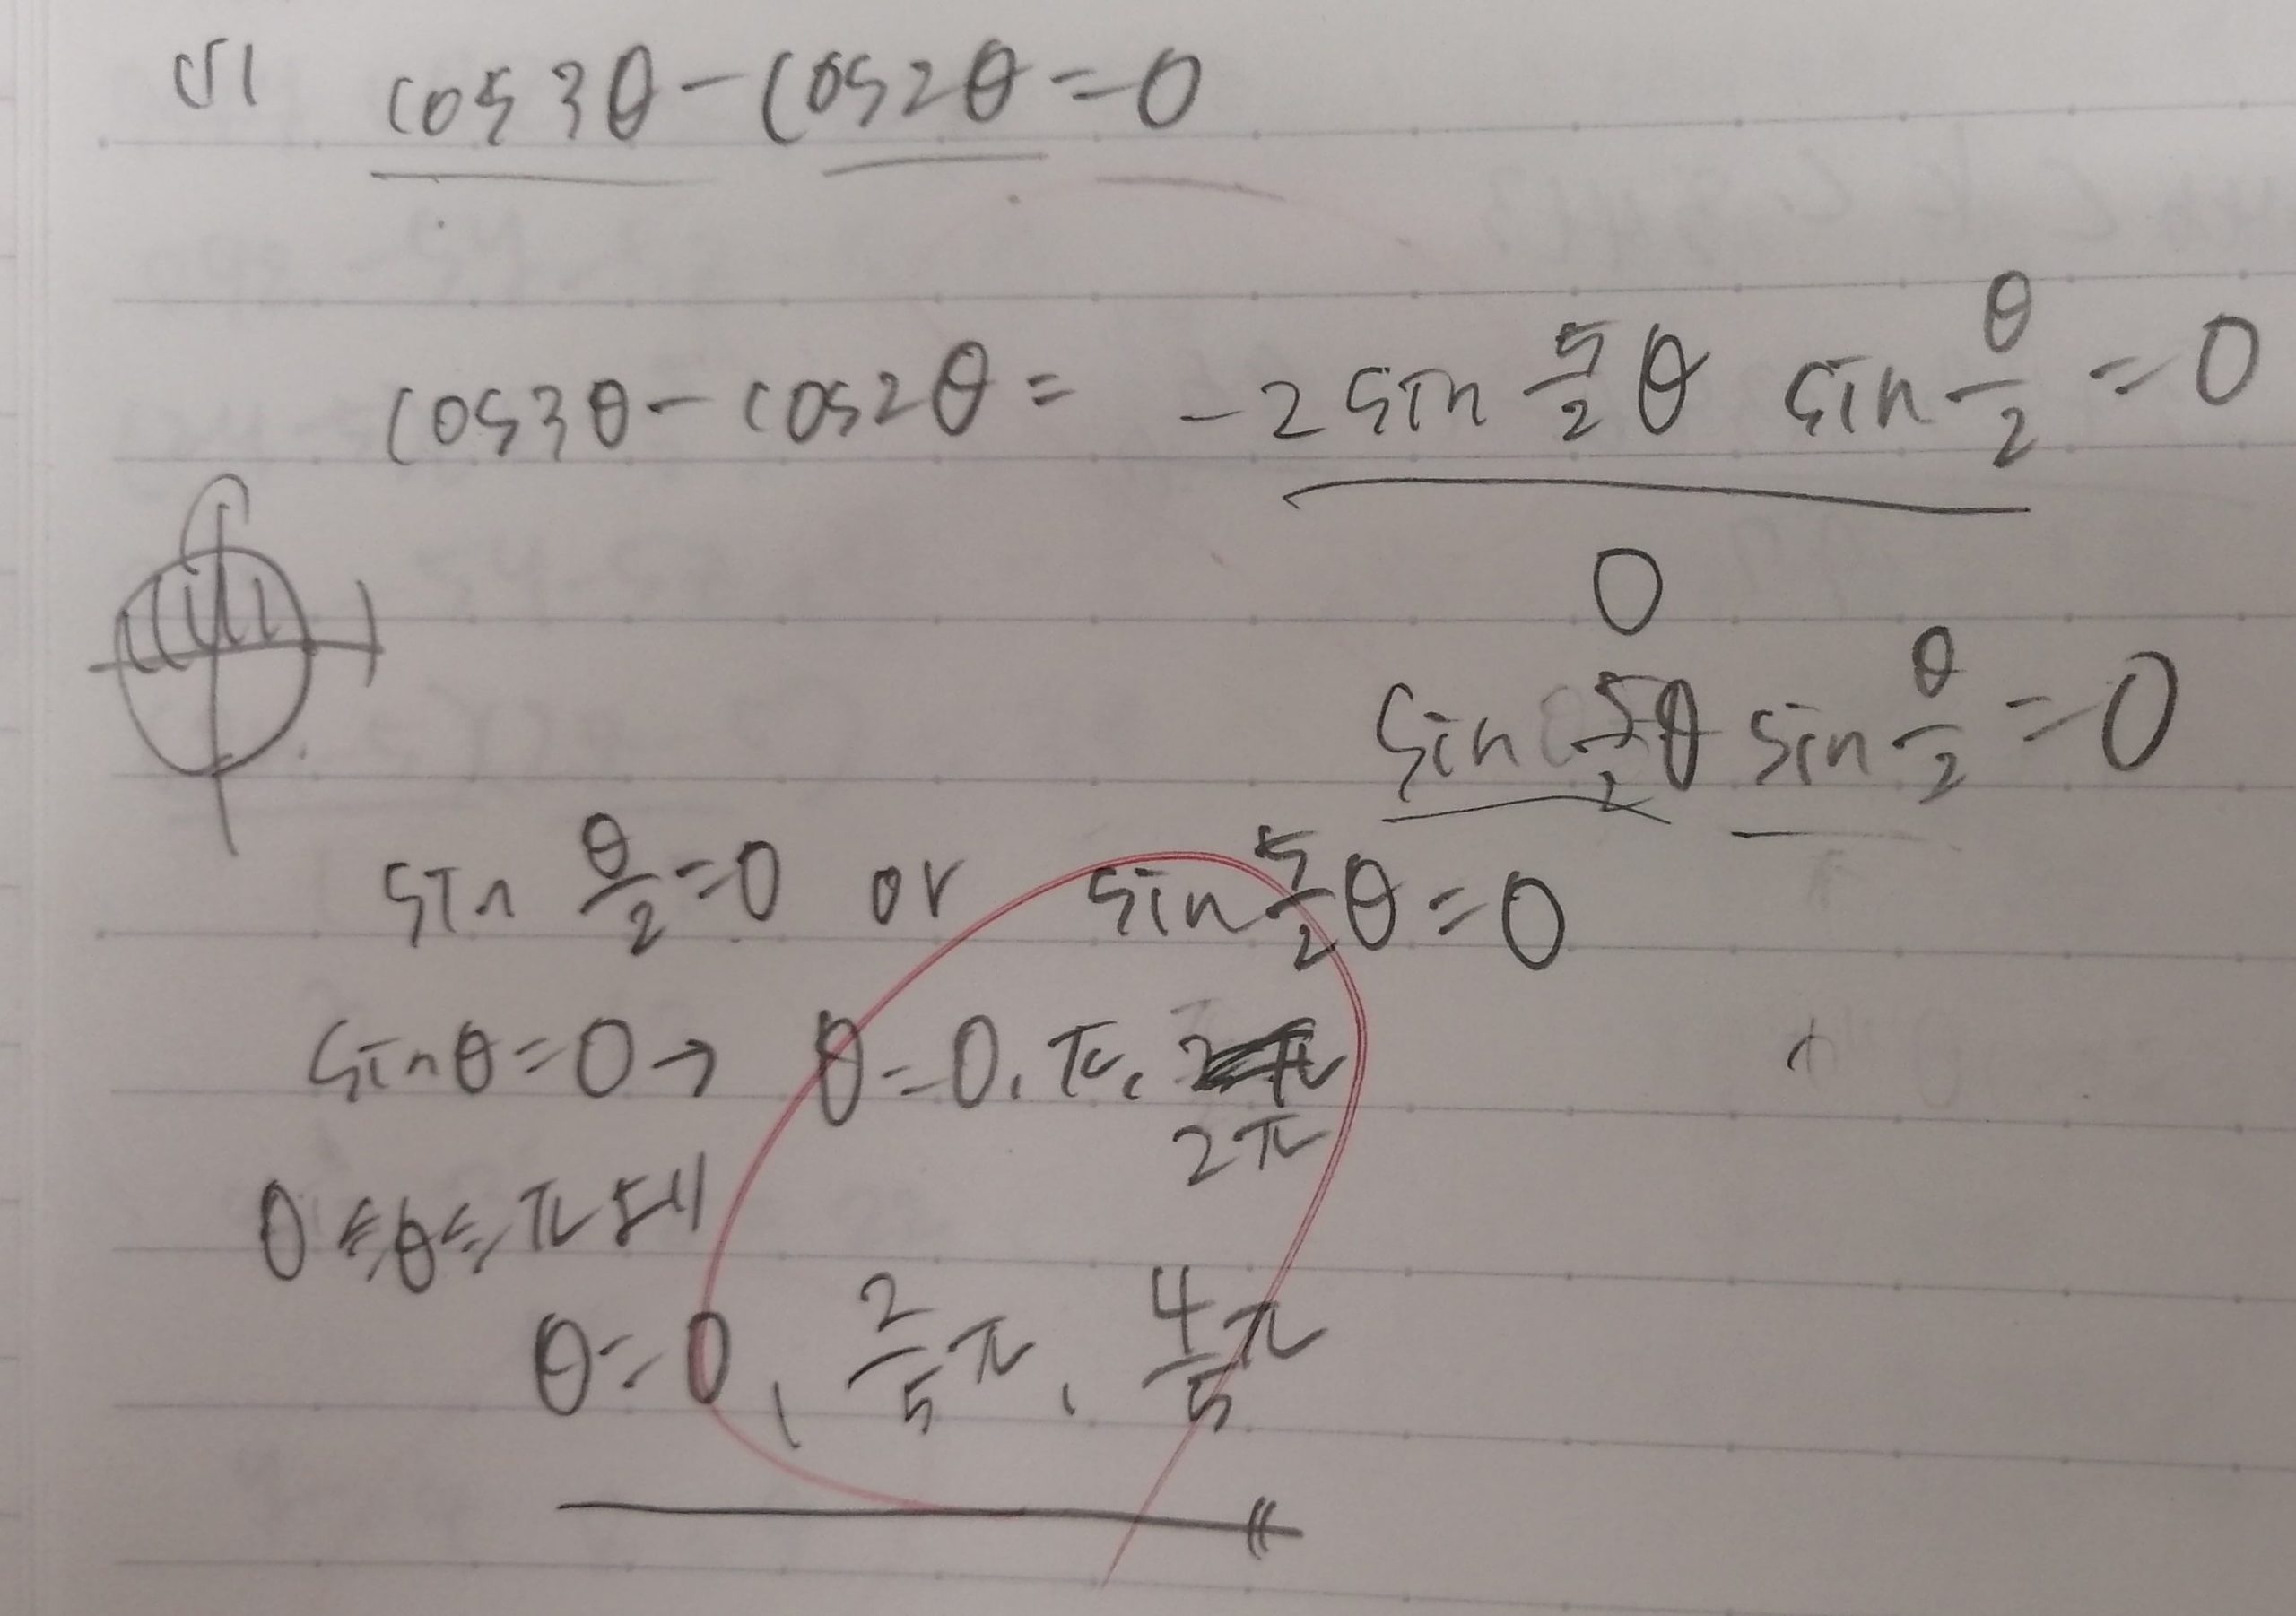 (1) cos3θ-cos2θ=0
cos3θ-cos2θ= -2sin 5/2 θ sin θ/2 =0
0
sin 5/2 θ sin θ/2 =0
sin θ/2 =0 or sin 5/2 θ=0
sinθ=0→ θ=0, π,
2π
0≦θ≦πより
θ=0, 2/5 π, 4/5 π